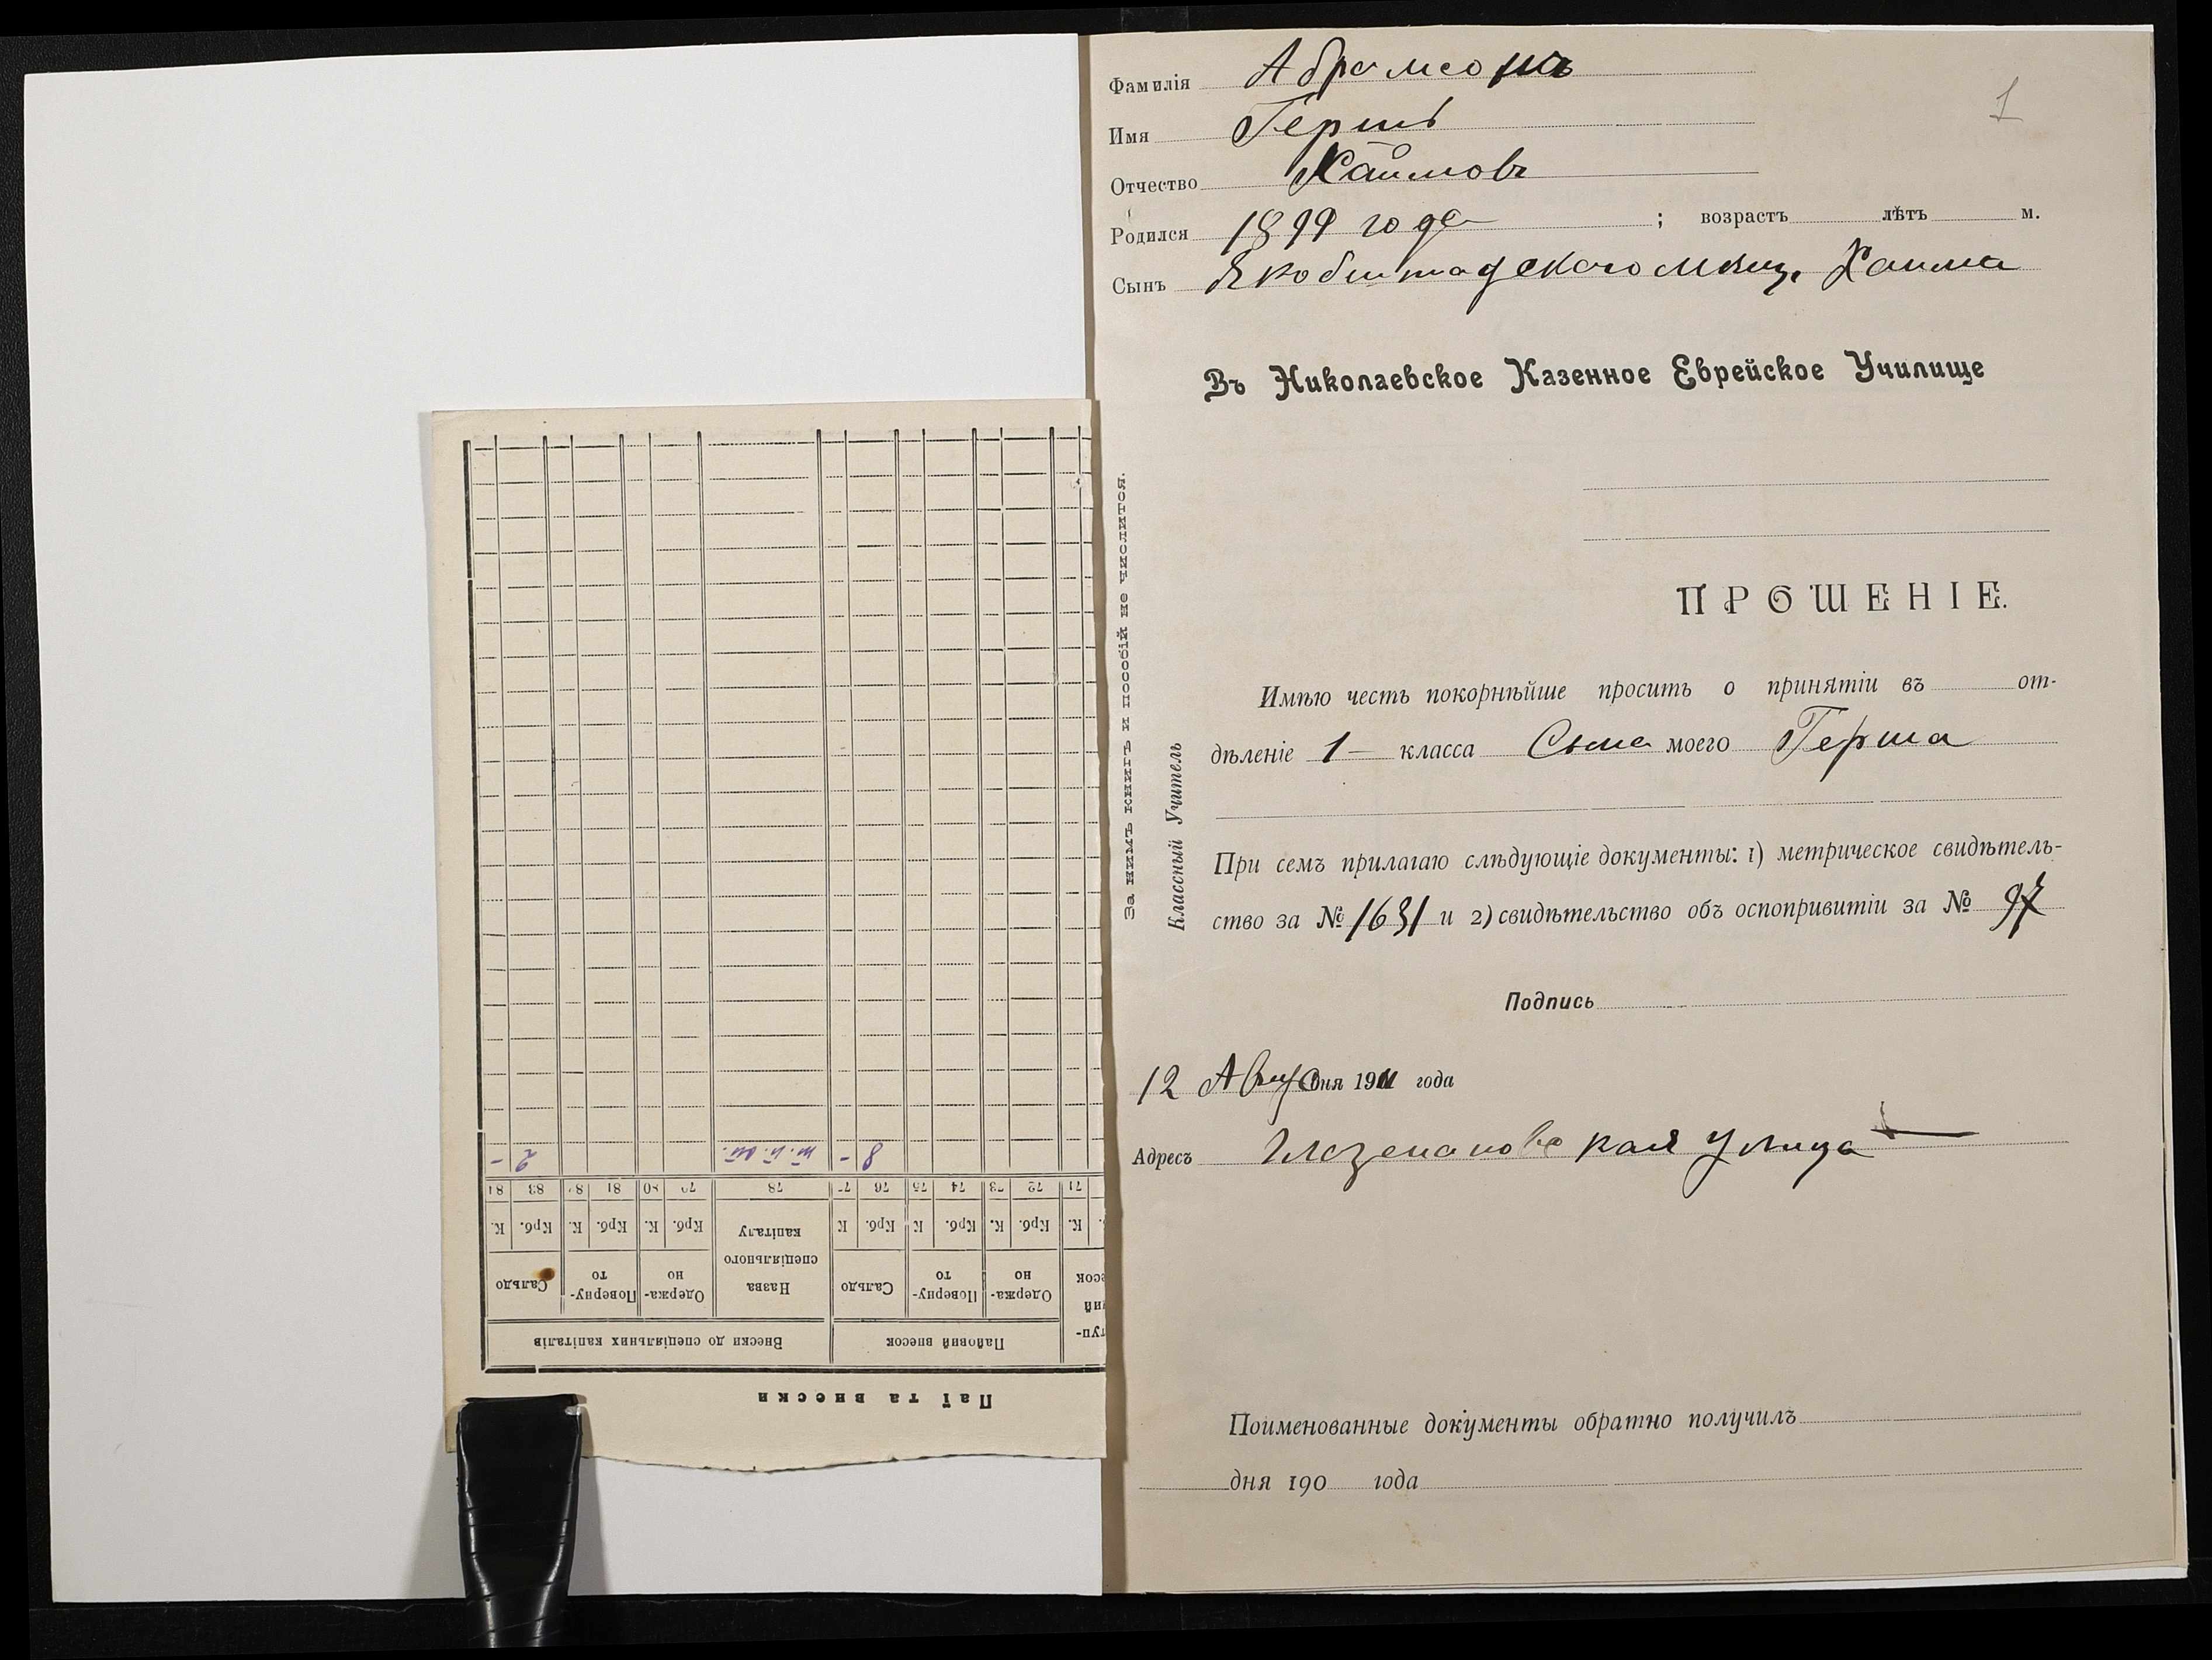 Фамилія Абрамсонъ
1
Имя Гершъ
Отчество Хаимовъ
Родился 1899 года ; возрастъ лѣтъ м.
Сынъ Якобштадскаго мѣщ. Хаима
Въ Николаевское Казенное Еврейское Училище
ПРОШЕНІЕ.
Имѣю честь покорнѣйше просить о принятіи въ от-
дѣленіе 1 – класса Сына моего Герша
При семъ прилагаю слѣдующіе документы: 1) метрическое свидѣтель-
ство за № 1631 и 2) свидѣтельство объ оспопривитіи за № 97
Подпись
12 Авгу дня 1911 года
Адресъ улица
Поименованные документы обратно получилъ
дня 190 года
За нимъ книгъ и пособій не числится.
Классный Учитель
Паї та внески
Пайовий внесок
Внески до спеціяльних капіталів
Одержа-
но
Поверну-
то
Сальдо
Назва
спеціяльного
капіталу
Одержа-
но
Поверну-
то
Сальдо
К. Крб. К. Крб. К Крб. К Крб. К. Крб. К. Крб. К.
71 72 73 74 75 76 77 78 79 80 81 82 83 84
8 – 2 –